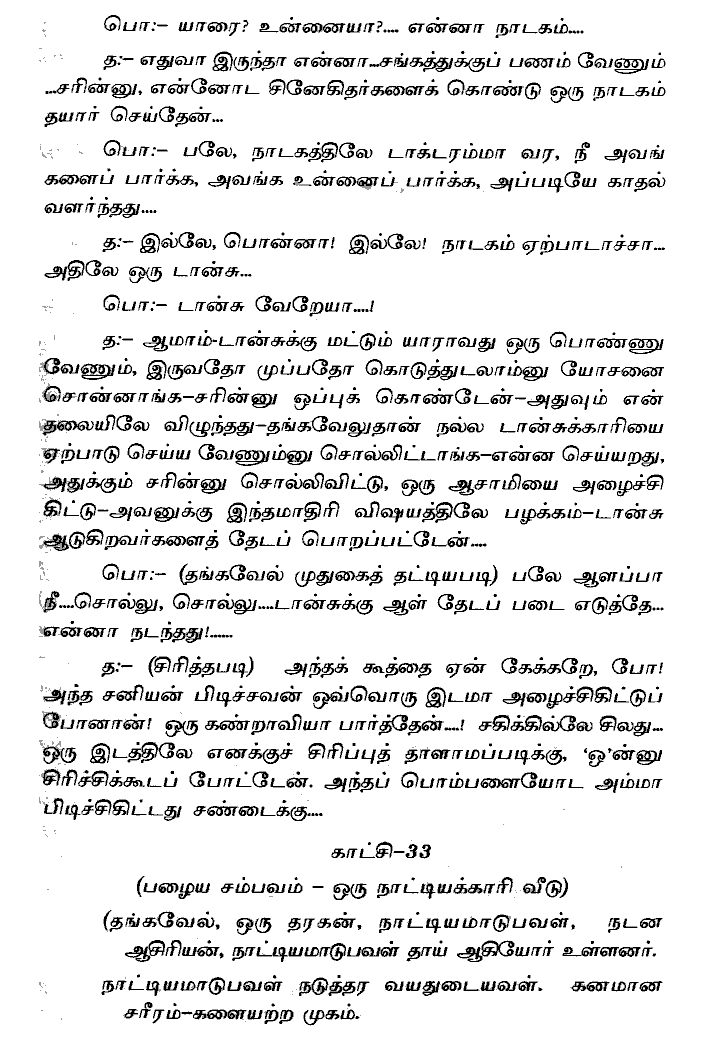 பொ:– யாரை? உன்னையா?.... என்னா நாடகம்....
த:– எதுவா இருந்தா என்னா...சங்கத்துக்குப் பணம் வேணும்
...சரின்னு, என்னோட சினேகிதர்களைக் கொண்டு ஒரு நாடகம்
தயார் செய்தேன்...
பொ:– பலே, நாடகத்திலே டாக்டரம்மா வர, நீ அவங்
களைப் பார்க்க, அவங்க உன்னைப் பார்க்க, அப்படியே காதல்
வளர்ந்தது....
த:– இல்லே, பொன்னா! இல்லே! நாடகம் ஏற்பாடாச்சா...
அதிலே ஒரு டான்சு...
பொ:– டான்சு வேறேயா....!
த:– ஆமாம்-டான்சுக்கு மட்டும் யாராவது ஒரு பொண்ணு
வேணும், இருவதோ முப்பதோ கொடுத்துடலாம்னு யோசனை
சொன்னாங்க–சரின்னு ஒப்புக் கொண்டேன்–அதுவும் என்
தலையிலே விழுந்தது–தங்கவேலுதான் நல்ல டான்சுக்காரியை
ஏற்பாடு செய்ய வேணும்னு சொல்லிட்டாங்க–என்ன செய்யறது,
அதுக்கும் சரின்னு சொல்லிவிட்டு, ஒரு ஆசாமியை அழைச்சி
கிட்டு–அவனுக்கு இந்தமாதிரி விஷயத்திலே பழக்கம்–டான்சு
ஆடுகிறவர்களைத் தேடப் பொறப்பட்டேன்....
பொ:– (தங்கவேல் முதுகைத் தட்டியபடி) பலே ஆளப்பா
நீ....சொல்லு, சொல்லு....டான்சுக்கு ஆள் தேடப் படை எடுத்தே...
என்னா நடந்தது!......
த:– (சிரித்தபடி) அந்தக் கூத்தை ஏன் கேக்கறே, போ!
அந்த சனியன் பிடிச்சவன் ஒவ்வொரு இடமா அழைச்சிகிட்டுப்
போனான்! ஒரு கண்றாவியா பார்த்தேன்....! சகிக்கில்லே சிலது...
ஒரு இடத்திலே எனக்குச் சிரிப்புத் தாளாமப்படிக்கு, ‘ஓ’ன்னு
சிரிச்சிக்கூடப் போட்டேன். அந்தப் பொம்பளையோட அம்மா
பிடிச்சிகிட்டது சண்டைக்கு....
காட்சி–33
(பழைய சம்பவம் – ஒரு நாட்டியக்காரி வீடு)
(தங்கவேல், ஒரு தரகன், நாட்டியமாடுபவள், நடன
ஆசிரியன், நாட்டியமாடுபவள் தாய் ஆகியோர் உள்ளனர்.
நாட்டியமாடுபவள் நடுத்தர வயதுடையவள். கனமான
சரீரம்–களையற்ற முகம்.